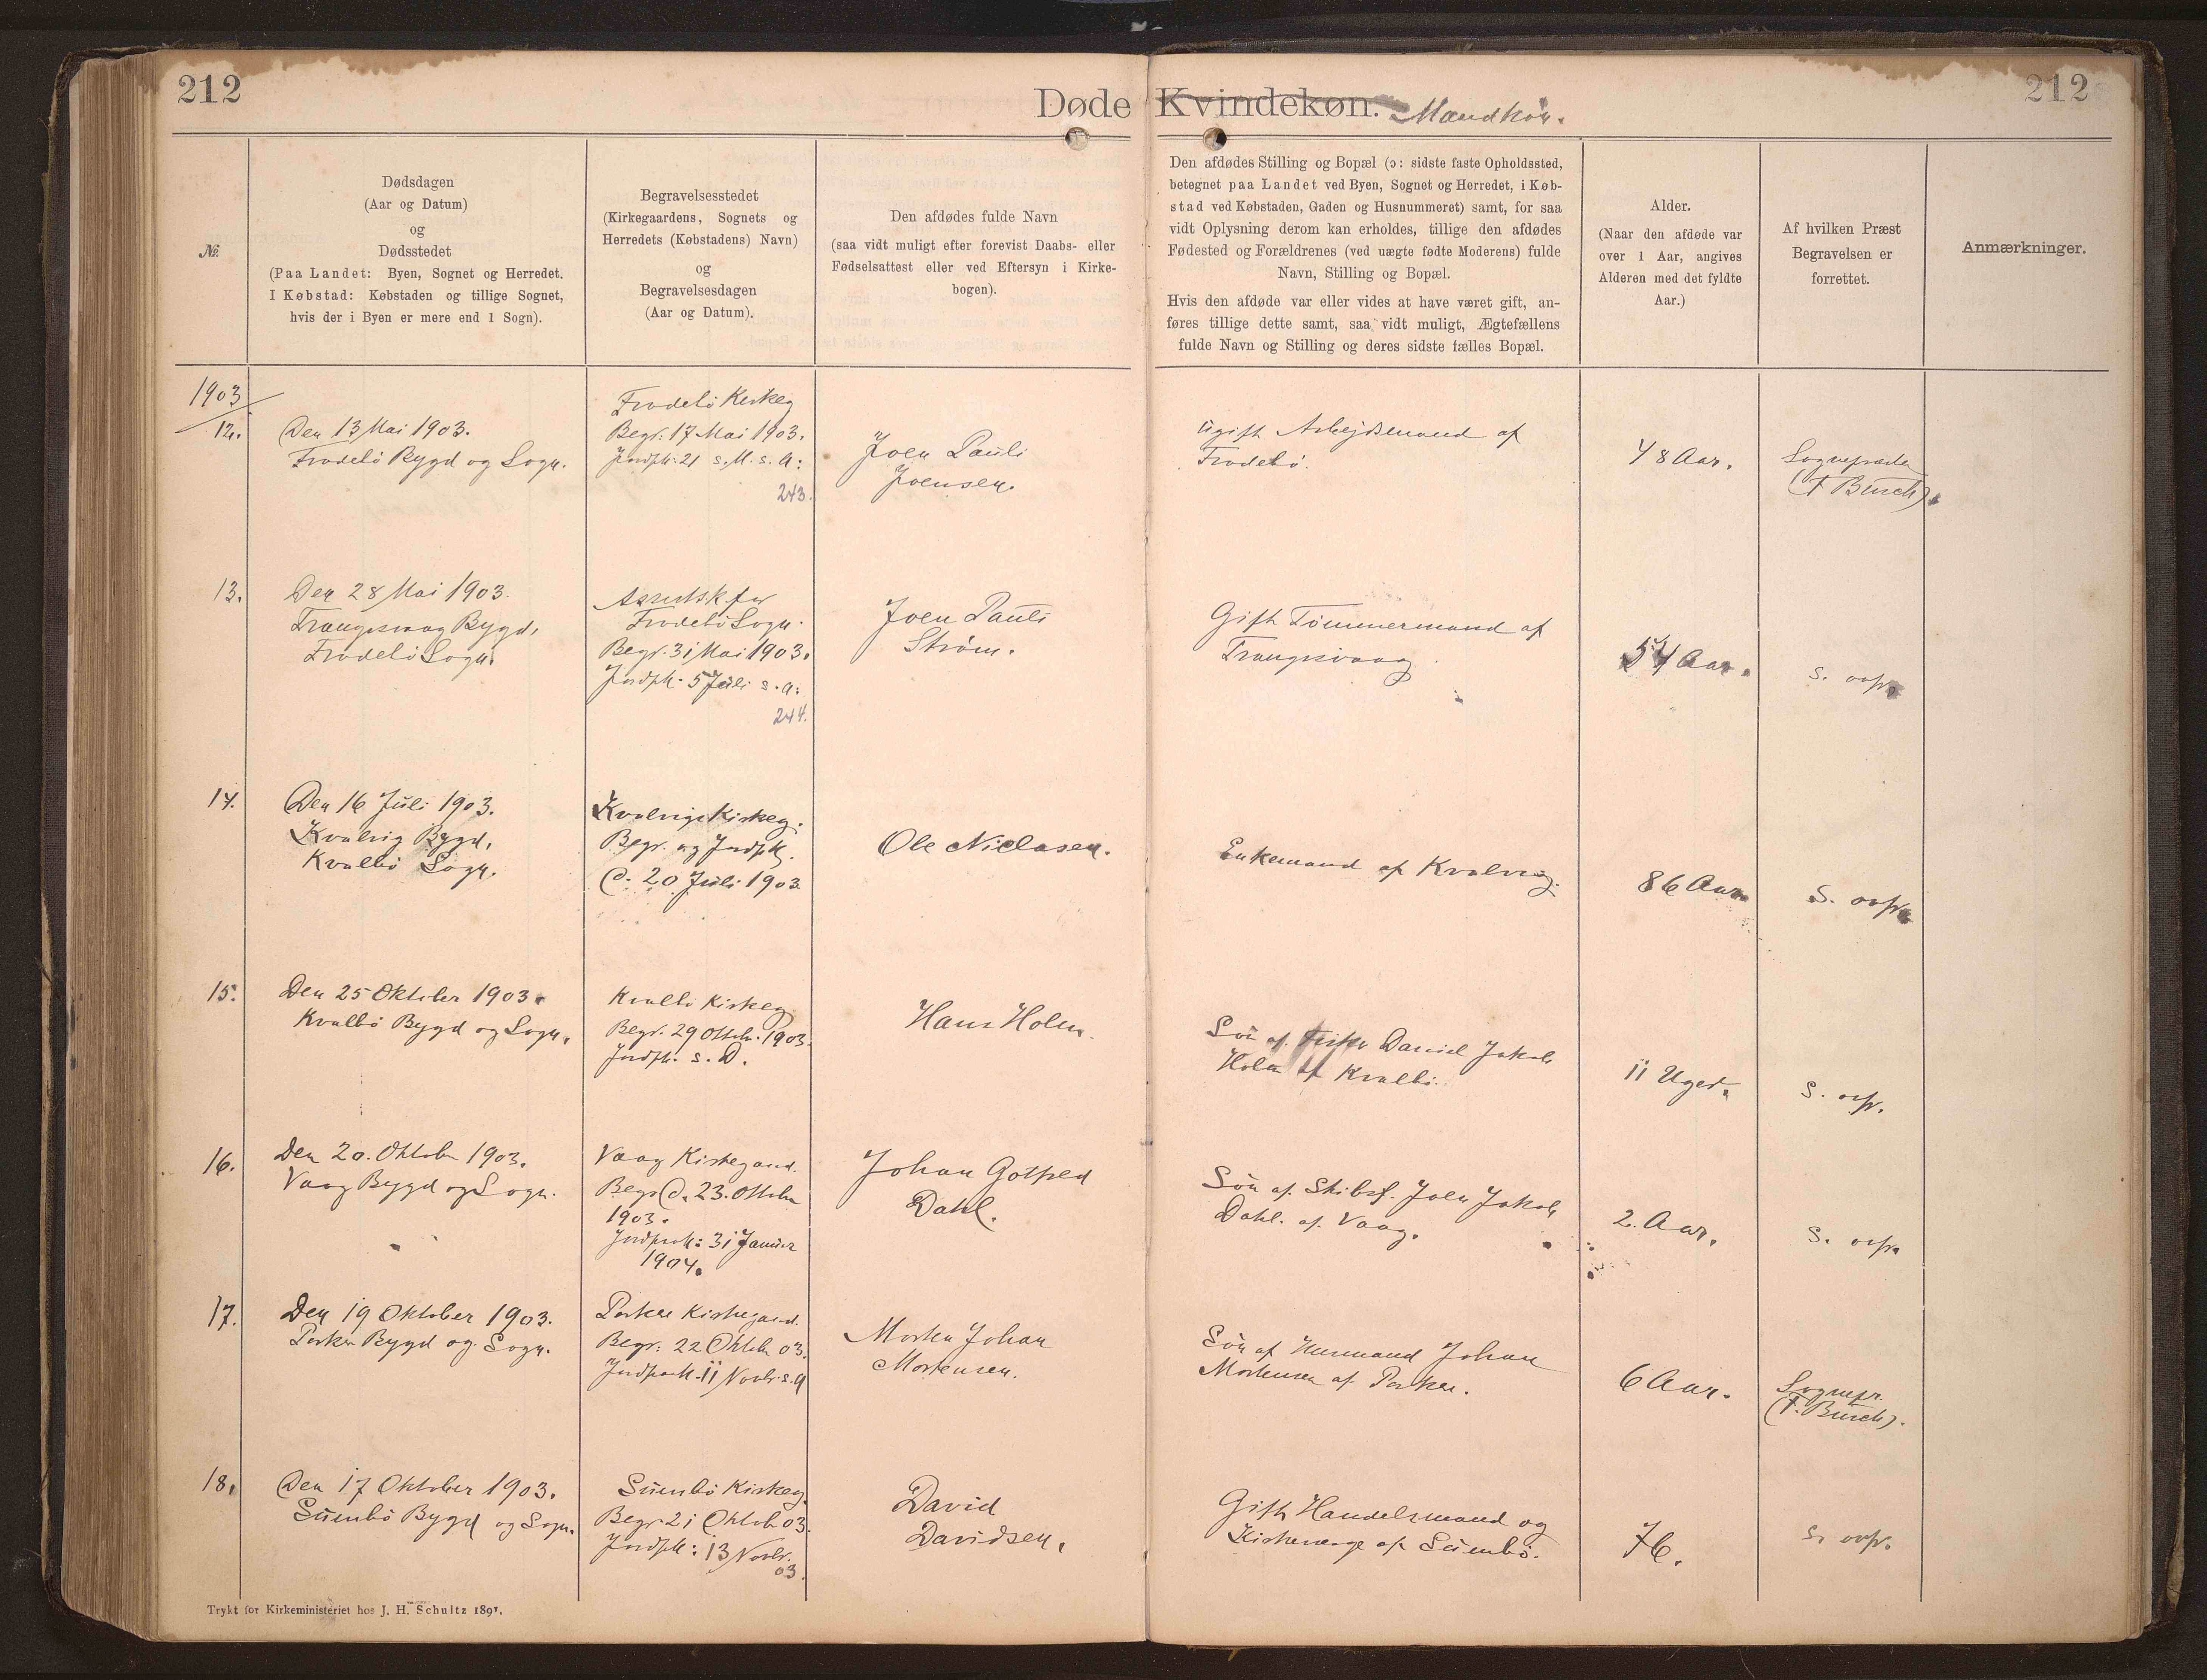 212
Døde Kvindekøn. Mandkøn.
212
№.
Dødsdagen
(Aar og Datum)
og
Dødsstedet
(Paa Landet: Byen, Sognet og Herredet.
I Købstad: Købstaden og tillige Sognet,
hvis der i Byen er mere end 1 Sogn).
Begravelsesstedet
(Kirkegaardens, Sognets og
Herredets (Købstadens) Navn)
og
Begravelsesdagen
(Aar og Datum).
Den afdødes fulde Navn
(saa vidt muligt efter forevist Daabs- eller
Fødselsattest eller ved Eftersyn i Kirke-
bogen).
Den afdødes Stilling og Bopæl (ɔ: sidste faste Opholdssted,
betegnet paa Landet ved Byen, Sognet og Herredet, i Køb-
stad ved Købstaden, Gaden og Husnummeret) samt, for saa
vidt Oplysning derom kan erholdes, tillige den afdødes
Fødested og Forældrenes (ved uægte fødte Moderens) fulde
Navn, Stilling og Bopæl.
Hvis den afdøde var eller vides at have været gift, an-
føres tillige dette samt, saa vidt muligt, Ægtefællens
fulde Navn og Stilling og deres sidste fælles Bopæl.
Alder.
(Naar den afdøde var
over 1 Aar, angives
Alderen med det fyldte
Aar.)
Af hvilken Præst
Begravelsen er
forrettet.
Anmærkninger.
1903
12.
Den 13 Mai 1903.
Frodebö Bygd og Sogn.
Frodebö Kirkeg
Begr. 17 Mai 1903.
Jordpk. 21 s. M. s. A:
243.
Joen Pauli
Joensen.
Ugift Arbejdsmand af
Frodebö.
48 Aar.
Sognepræsten
(F Busch).
13.
Den 28 Mai 1903.
Trangisvaag Bygd,
Frodebö Sogn.
Frodebö Sogn.
Begr. 31 Mai 1903.
Jordpk. 5 Juli s. a:
244.
Joen Pauli
Strøm.
Gift Tömmermand af
Trangisvaag.
54 Aar.
s. ovfr.
14.
Den 16 Juli 1903.
Kvalvig Bygd,
Kvalbö Sogn.
Kvalvigs Kirkeg.
Begr. og Jordpk.
D. 20 Juli 1903.
Ole Niclasen.
Enkemand af Kvalvig.
86 Aar.
S. ovfr.
15.
Den 25 Oktober 1903.
Kvalbö Bygd og Sogn.
Kvalbö Kirkeg
Begr. 29 Oktbr. 1903.
Jordpk. s. D.
Hans Holm.
Sön af Fisker Daniel Jakob
Holm af Kvalbö.
11 Uger.
S. ovfr.
16.
Den 20. Oktober 1903.
Vaag Bygd og Sogn.
Vaag Kirkegaard.
Begr. D. 23. Oktober
1903.
Jordpaak: 31 Januar
1904.
Johan Gotfred
Dahl.
Sön af Skibsf. Joen Jakob
Dahl. af Vaag.
2. Aar.
S. ovfr.
17.
Den 19 Oktober 1903.
Porkeri Bygd og Sogn.
Porkeri Kirkegaard.
Begr. 22 Oktober 03.
Jordpaak. 11 Novbr. s. A
Morten Johan
Mortensen.
Sön af Husmand Johan
Mortensen af Porkeri.
6 Aar.
Sognepr.
(F. Busch).
18.
Den 17 Oktober 1903.
Sumbö Bygd og Sogn.
Sumbö Kirkeg.
Begr. 21 Oktob 03.
Jordpk: 13 Novbr.
03.
David
Davidsen.
Gift Handelsmand og
Kirkeværge af Sumbö.
76.
S. ovfr.
Trykt for Kirkeministeriet hos J. H. Schultz 1891.